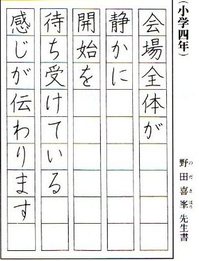 (小学四年)
会場全体が
静かに
開始を
待ち受けている
感じが伝わります
野田喜峯先生書